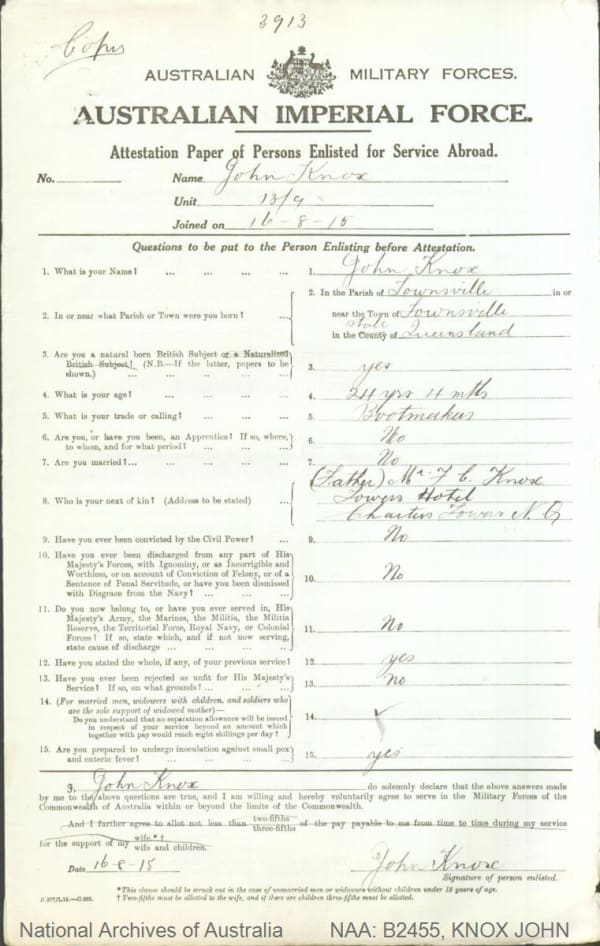 3913
Copy
AUSTRALIAN MILITARY FORCES.
AUSTRALIAN IMPERIAL FORCE.
Attestation Paper of Persons Enlisted for Service Abroad.
No. Name John Knox
Unit 13/9
Joined on 16-8-15
Questions to be put to the Person Enlisting before Attestation.
1. What is your Name? ... ... ... ... 1. John Knox
2. In or near what Parish or Town were you born? ... 2. In the Parish of Townsville in or
near the Town of Townsville
state
in the County of Queensland
3. Are you a natural born British Subject or a Naturalized
British Subject? (N.B.—If the latter, papers to be
shown.) ... ... ... ... 3. yes
4. What is your age? ... ... ... ... 4. 24 yrs 4 mths
5. What is your trade or calling? ... ... ... 5. Bootmaker
6. Are you, or have you been, an Apprentice? If so, where,
to whom, and for what period? ... ... ... 6. No
7. Are you married? ... ... ... ... 7. No
8. Who is your next of kin? (Address to be stated) ... 8. (Father) Mr. F C. Knox
Towers Hotel
Charters Towers N. Q
9. Have you ever been convicted by the Civil Power? ... 9. No
10. Have you ever been discharged from any part of His
Majesty's Forces, with Ignominy, or as Incorrigible and
Worthless, or on account of Conviction of Felony, or of a
Sentence of Penal Servitude, or have you been dismissed
with Disgrace from the Navy? ... ... ... 10. No
11. Do you now belong to, or have you ever served in, His
Majesty's Army, the Marines, the Militia, the Militia
Reserve, the Territorial Force, Royal Navy, or Colonial
Forces? If so, state which, and if not now serving,
state cause of discharge ... ... ... ... 11. No
12. Have you stated the whole, if any, of your previous service? 12. yes
13. Have you ever been rejected as unfit for His Majesty's
Service? If so, on what grounds? ... ... ... 13. No
14. (For married men, widowers with children, and soldiers who
are the sole support of widowed mother)—
Do you understand that no separation allowance will be issued
in respect of your service beyond an amount which
together with pay would reach eight shillings per day? 14. ✓
15. Are you prepared to undergo inoculation against small pox
and enteric fever? 15. yes
I, John Knox do solemnly declare that the above answers made
by me to the above questions are true, and I am willing and hereby voluntarily agree to serve in the Military Forces of the
Commonwealth of Australia within or beyond the limits of the Commonwealth.
And I further agree to allot not less than two-fifths three-fifths of the pay payable to me from time to time during my service
for the support of my wife.*† wife and children.
Date 16-8-15 John Knox
Signature of person enlisted.
*This clause should be struck out in the case of unmarried men or widowers without children under 18 years of age.
† Two-fifths must be allotted to the wife, and if there are children three-fifths must be allotted.
National Archives of Australia NAA: B2455, KNOX JOHN